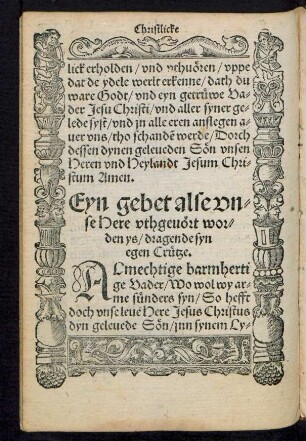 Christlicke
lick erholden / vnd vthuören / vppe
dat de ydele werlt erkenne / dath du
ware Godt / vnd eyn getrüwe Va-
der Jesu Christi / vnd aller syner ge-
lede syst / vnd jn alle eren anslegen a-
uer vns / tho schandē werde / Dorch
dessen dynen geleueden Sön vnsen
Heren vnd Heylandt Jesum Chri-
stum Amen.
Eyn gebet alse vn-
se Here vthgeuört wor-
den ys / dragende syn
egen Crütze.
Almechtige barmherti
ge Vader / Wo wol wy ar-
me sünders syn / So hefft
doch vnse leue Here Jesus Christus
dyn geleuede Sön / jnn synem Ly-